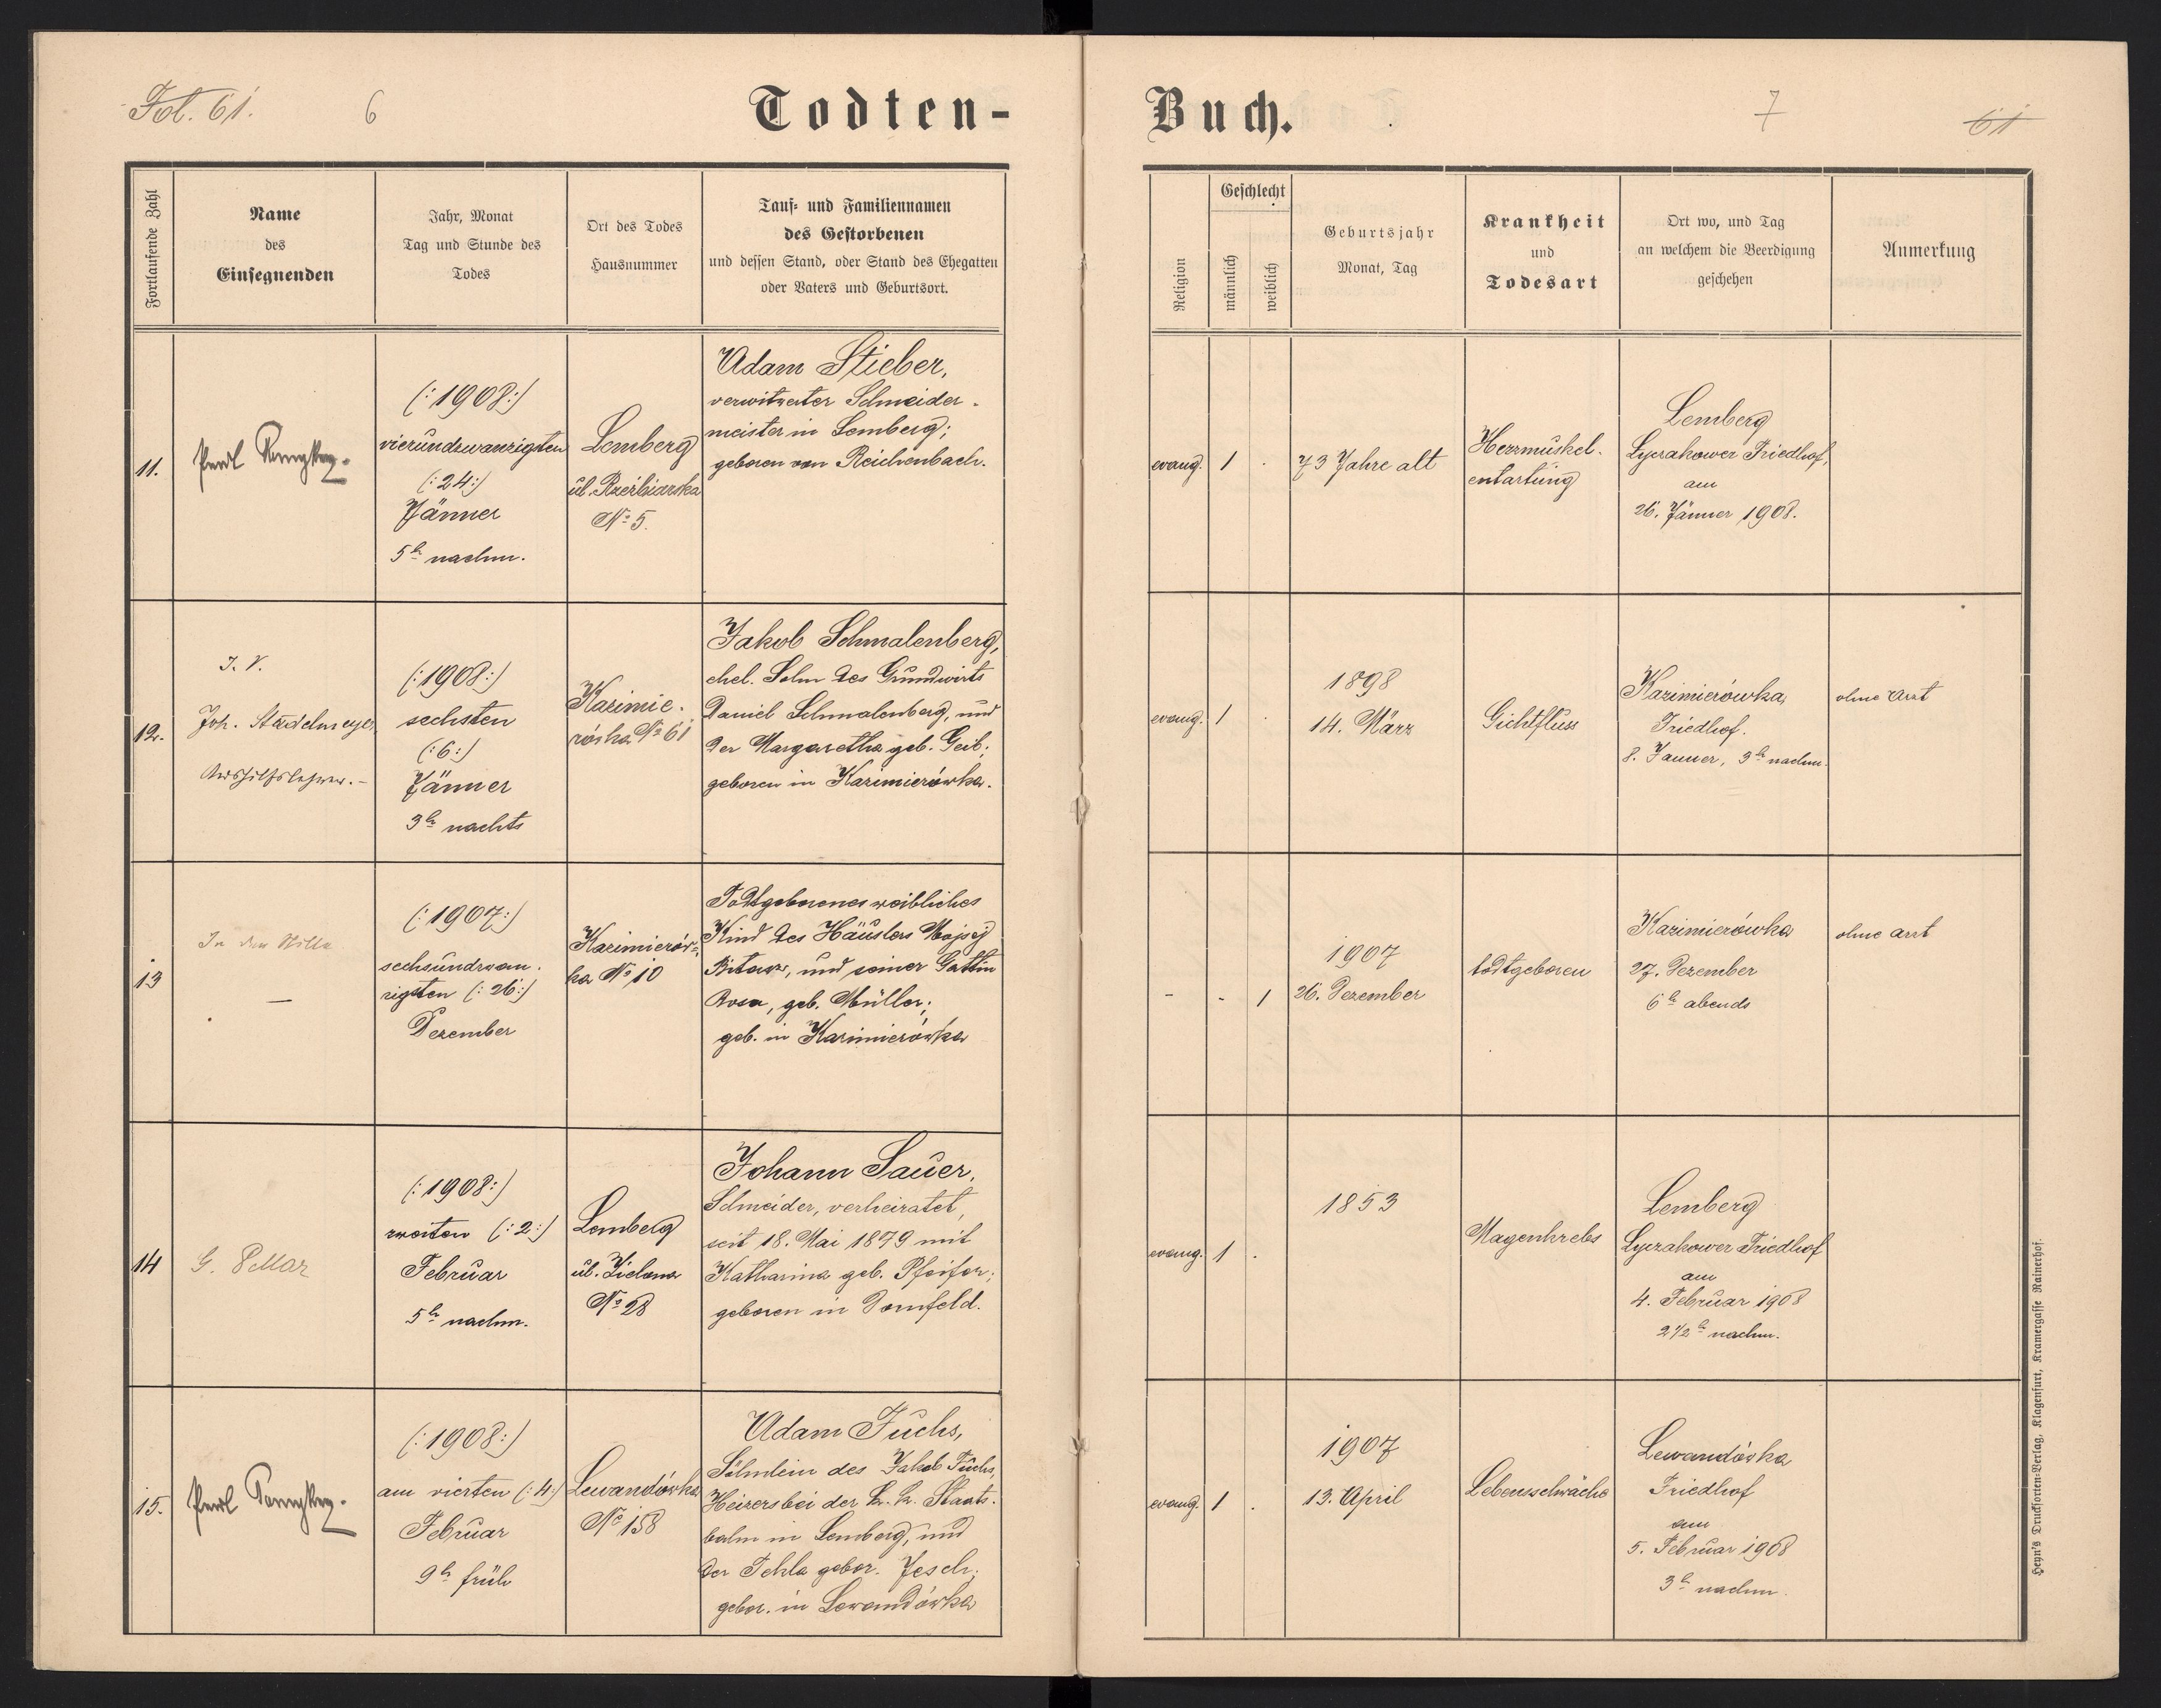 Fol. 61.
6
Todten-
Fortlaufende Zahl
Name
des
Einsegnenden
Jahr, Monat
Tag und Stunde des
Todes
Ort des Todes
Hausnummer
Tauf- und Familiennamen
des Gestorbenen
und dessen Stand, oder Stand des Ehegatten
oder Vaters und Geburtsort.
11.
(:1908:)
vierundzwanzigsten
(:24:)
Jänner
5h nachm.
Lemberg
ul.
No 5.
Adam Stieber,
verwitweter Schneider-
meister in Lemberg;
geboren von Reichenbach.
12.
I. V.
Joh. Stadelmeyer
Aushilfslehrer.-
(:1908:)
sechsten
(:6:)
Jänner
3h nachts
Kazimie-
rówka No 61
Jakob Schmalenberg,
ehel. Sohn des Grundwirts
Daniel Schmalenberg, und
der Margaretha geb. Geib;
geboren in Kazimierówka.
13
In der Stille
—
(:1907:)
sechsundzwan-
zigsten (:26:)
Dezember
Kazimierów-
ka No 10
Todtgeborenes weibliches
Kind des Häuslers Mojsej
und seiner Gattin
Rosa, geb. Müller;
geb. in Kazimierówka
14
G.
(:1908:)
zweiten (:2:)
Februar
5h nachm.
Lemberg
ul. Zielona
No 28
Johann Sauer,
Schneider, verheiratet,
seit 18. Mai 1879 mit
Katharina geb. Pfeifer;
geboren in Dornfeld.
15.
(:1908:)
am vierten (:4:)
Februar
9h früh
Lewandówka
No 158
Adam Fuchs,
Söhnlein des Jakob Fuchs,
Heizers bei der k. k. Staats-
bahn in Lemberg, und
der Tekla gebor. Jesch;
gebor. in Lewandówka
Buch.
7
61
Religion
Geschlecht
männlich
weiblich
Geburtsjahr
Monat, Tag
Krankheit
und
Todesart
Ort wo, und Tag
an welchem die Beerdigung
geschehen
Anmerkung
evang.
1
.
73 Jahre alt
Herzmuskel-
entartung
Lemberg
Lyczakower Friedhof,
am
26. Jänner 1908.
evang.
1
.
1898
14. März
Gichtfluss
Kazimierówka,
Friedhof.
8. Jänner, 3h nachm.
ohne Arzt
-
-
1
1907
26. Dezember
todtgeboren
Kazimierówka
27. Dezember
6h abends
ohne Arzt
evang.
1
.
1853
Magenkrebs
Lemberg
Lyczakower Friedhof
am
4. Februar 1908
2 1/2h nachm.
evang.
1
.
1907
13. April
Lebensschwäche
Lewandówka
Friedhof
am
5. Februar 1908
3h nachm.
Heyn's Drucksorten-Verlag, Klagenfurt, Kramergasse Rainerhof.